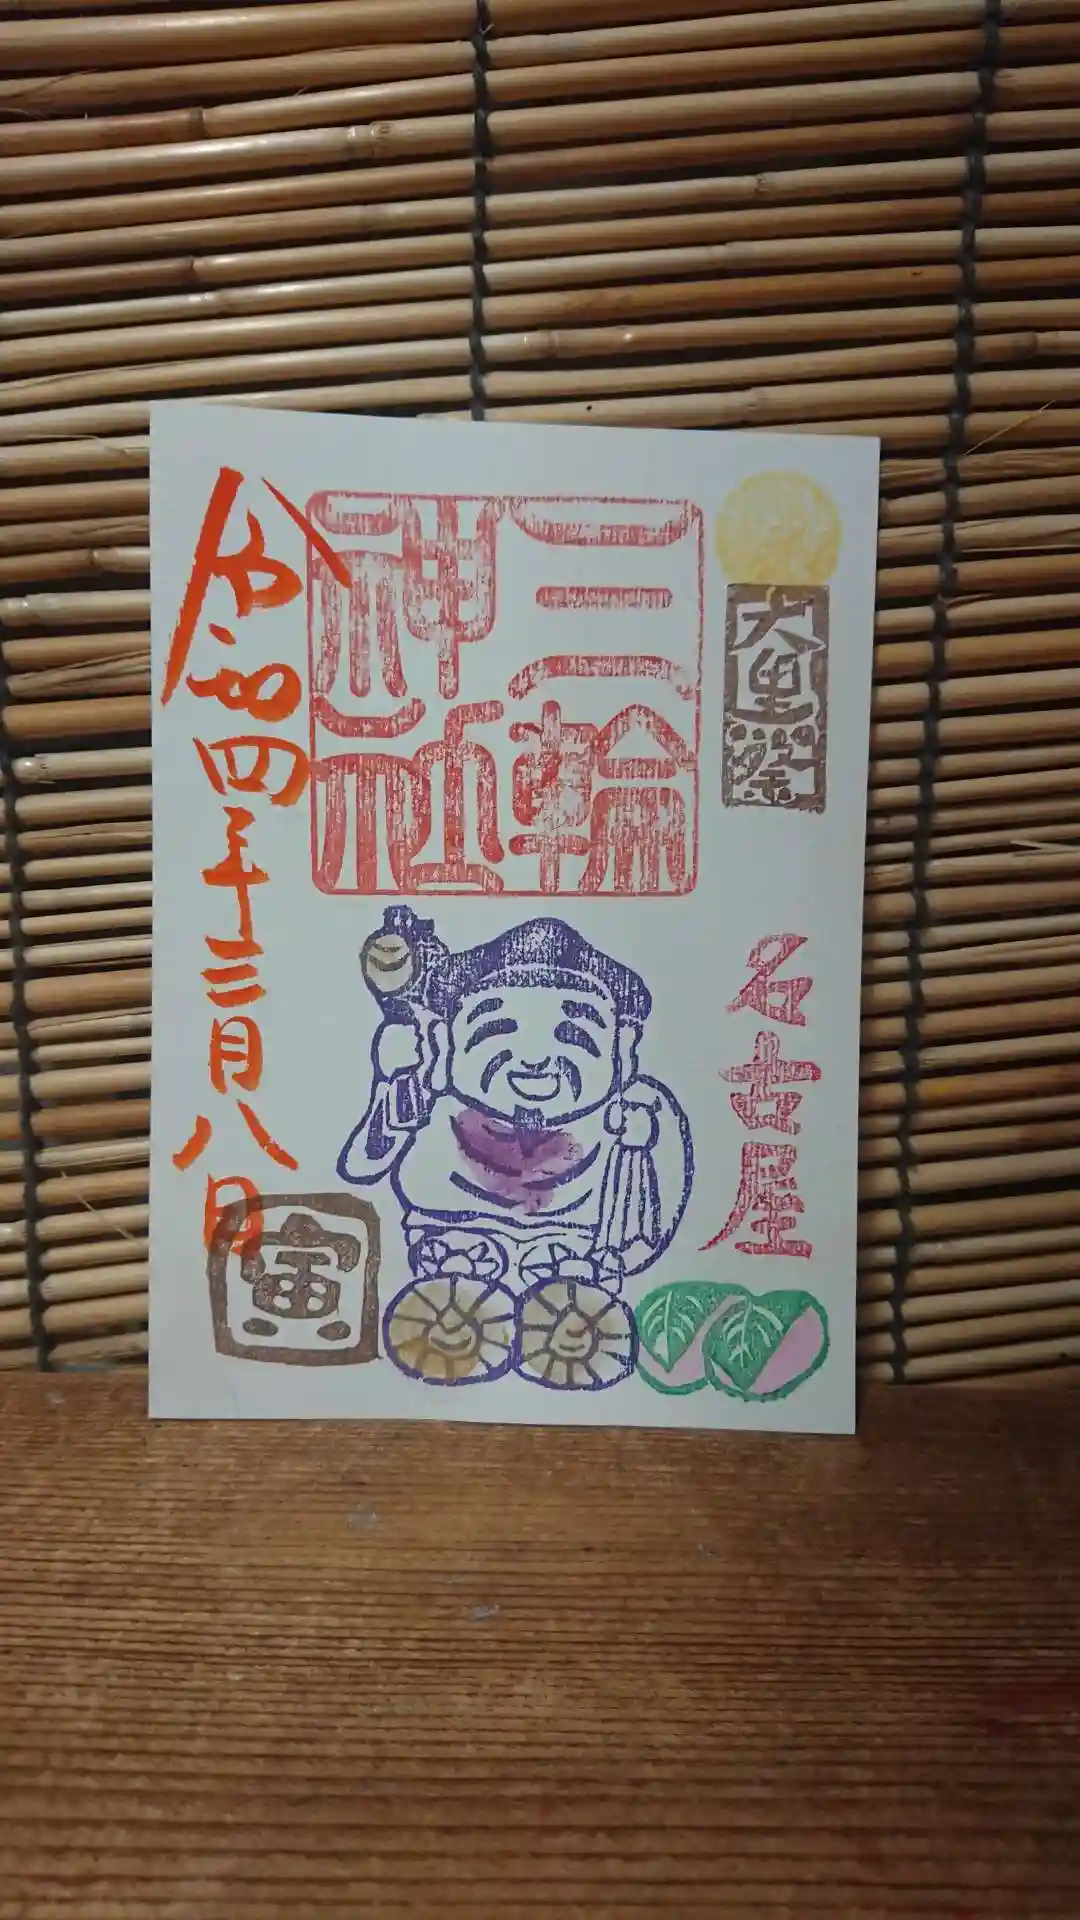 大黒祭
名古屋
三輪
神社
令和四年三月八日
寅